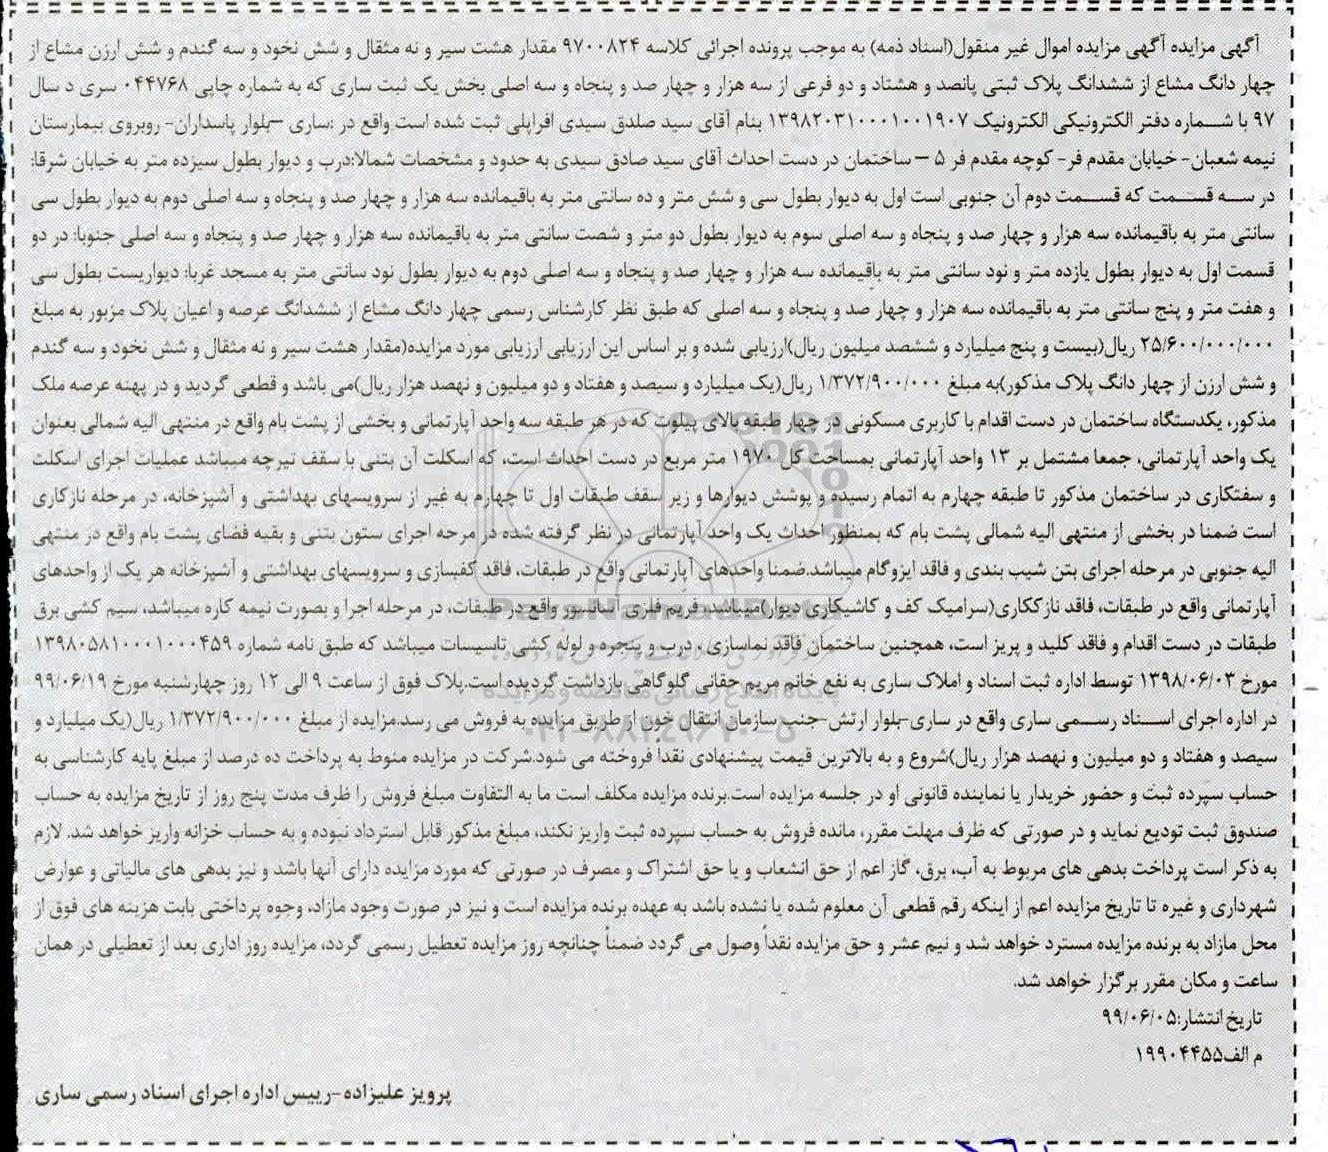 آگهی مزایده آگهی مزایده اموال غیر منقول(اسناد ذمه) به موجب پرونده اجرائی کلاسه ۹۷۰۰۸۲۴ مقدار هشت سیر و نه مثقال و شش نخود و سه گندم و شش ارزن مشاع از
چهار دانگ مشاع از ششدانگ پلاک ثبتی پانصد و هشتاد و دو فرعی از سه هزار و چهار صد و پنجاه و سه اصلی بخش یک ثبت ساری که به شماره چاپی ۰۴۴۷۶۸ سری د سال
۹۷ با شماره دفتر الکترونیکی الکترونیک ۱۳۹۸۲۰۳۱۰۰۰۱۰۰۱۹۰۷ بنام آقای سید صلدق سیدی افراپلی ثبت شده است واقع در :ساری –بلوار پاسداران- روبروی بیمارستان
نیمه شعبان- خیابان مقدم فر- کوچه مقدم فر ۵ – ساختمان در دست احداث آقای سید صادق سیدی به حدود و مشخصات شمالا:درب و دیوار بطول سیزده متر به خیابان شرقا:
در سه قسمت که قسمت دوم آن جنوبی است اول به دیوار بطول سی و شش متر و ده سانتی متر به باقیمانده سه هزار و چهار صد و پنجاه و سه اصلی دوم به دیوار بطول سی
سانتی متر به باقیمانده سه هزار و چهار صد و پنجاه و سه اصلی سوم به دیوار بطول دو متر و شصت سانتی متر به باقیمانده سه هزار و چهار صد و پنجاه و سه اصلی جنوبا: در دو
قسمت اول به دیوار بطول یازده متر و نود سانتی متر به باقیمانده سه هزار و چهار صد و پنجاه و سه اصلی دوم به دیوار بطول نود سانتی متر به مسجد غربا: دیواریست بطول سی
و هفت متر و پنج سانتی متر به باقیمانده سه هزار و چهار صد و پنجاه و سه اصلی که طبق نظر کارشناس رسمی چهار دانگ مشاع از ششدانگ عرصه و اعیان پلاک مزبور به مبلغ
۲۵/۶۰۰/۰۰۰/۰۰۰ ریال(بیست و پنج میلیارد و ششصد میلیون ریال)ارزیابی شده و بر اساس این ارزیابی ارزیابی مورد مزایده(مقدار هشت سیر و نه مثقال و شش نخود و سه گندم
و شش ارزن از چهار دانگ پلاک مذکور)به مبلغ ۱/۳۷۲/۹۰۰/۰۰۰ ریال(یک میلیارد و سیصد و هفتاد و دو میلیون و نهصد هزار ریال)می باشد و قطعی گردید و در پهنه عرصه ملک
مذکور، یکدستگاه ساختمان در دست اقدام با کاربری مسکونی در چهار طبقه بالای پیلوت که در هر طبقه سه واحد آپارتمانی و بخشی از پشت بام واقع در منتهی الیه شمالی بعنوان
یک واحد آپارتمانی، جمعا مشتمل بر ۱۳ واحد آپارتمانی بمساحت کل ۱۹۷۰ متر مربع در دست احداث است، که اسکلت آن بتنی با سقف تیرچه میباشد عملیات اجرای اسکلت
و سفتکاری در ساختمان مذکور تا طبقه چهارم به اتمام رسیده و پوشش دیوارها و زیر سقف طبقات اول تا چهارم به غیر از سرویسهای بهداشتی و آشپزخانه، در مرحله نازکاری
است ضمنا در بخشی از منتهی الیه شمالی پشت بام که بمنظور احداث یک واحد آپارتمانی در نظر گرفته شده در مرحه اجرای ستون بتنی و بقیه فضای پشت بام واقع در منتهی
الیه جنوبی در مرحله اجرای بتن شیب بندی و فاقد ایزوگام میباشد.ضمنا واحدهای آپارتمانی واقع در طبقات، فاقد کفسازی و سرویسهای بهداشتی و آشپزخانه هر یک از واحدهای
آپارتمانی واقع در طبقات، فاقد نازککاری(سرامیک کف و کاشیکاری دیوار)میباشد، فریم فلزی آسانسور واقع در طبقات، در مرحله اجرا و بصورت نیمه کاره میباشد، سیم کشی برق
طبقات در دست اقدام و فاقد کلید و پریز است، همچنین ساختمان فاقد نماسازی، درب و پنجره و لوله کشی تاسیسات میباشد که طبق نامه شماره ۱۳۹۸۰۵۸۱۰۰۰۱۰۰۰۴۵۹
مورخ ۱۳۹۸/۰۶/۰۳ توسط اداره ثبت اسناد و املاک ساری به نفع خانم مریم حقانی گلوگاهی بازداشت گردیده است.پلاک فوق از ساعت ۹ الی ۱۲ روز چهارشنبه مورخ ۹۹/۰۶/۱۹
در اداره اجرای اسناد رسمی ساری واقع در ساری-بلوار ارتش-جنب سازمان انتقال خون از طریق مزایده به فروش می رسد.مزایده از مبلغ ۱/۳۷۲/۹۰۰/۰۰۰ ریال(یک میلیارد و
سیصد و هفتاد و دو میلیون و نهصد هزار ریال)شروع و به بالاترین قیمت پیشنهادی نقدا فروخته می شود.شرکت در مزایده منوط به پرداخت ده درصد از مبلغ پایه کارشناسی به
حساب سپرده ثبت و حضور خریدار یا نماینده قانونی او در جلسه مزایده است.برنده مزایده مکلف است ما به التفاوت مبلغ فروش را ظرف مدت پنج روز از تاریخ مزایده به حساب
صندوق ثبت تودیع نماید و در صورتی که ظرف مهلت مقرر، مانده فروش به حساب سپرده ثبت واریز نکند، مبلغ مذکور قابل استرداد نبوده و به حساب خزانه واریز خواهد شد. لازم
به ذکر است پرداخت بدهی های مربوط به آب، برق، گاز اعم از حق انشعاب و یا حق اشتراک و مصرف در صورتی که مورد مزایده دارای آنها باشد و نیز بدهی های مالیاتی و عوارض
شهرداری و غیره تا تاریخ مزایده اعم از اینکه رقم قطعی آن معلوم شده یا نشده باشد به عهده برنده مزایده است و نیز در صورت وجود مازاد، وجوه پرداختی بابت هزینه های فوق از
محل مازاد به برنده مزایده مسترد خواهد شد و نیم عشر و حق مزایده نقداً وصول می گردد ضمناً چنانچه روز مزایده تعطیل رسمی گردد، مزایده روز اداری بعد از تعطیلی در همان
ساعت و مکان مقرر برگزار خواهد شد.
تاریخ انتشار:۹۹/۰۶/۰۵
م الف۱۹۹۰۴۴۵۵
پرویز علیزاده-رییس اداره اجرای اسناد رسمی ساری